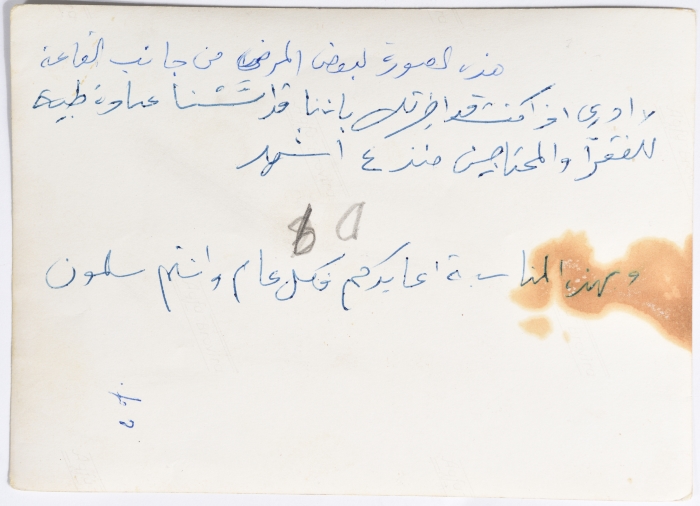 هذه الصورة لبعض المرضى من جانب القاعة
لا ادري اذا كنت قد اخبرتك باننا قد انشئنا عيادة طبية
للفقرآ والمحتاجين منذ ٤ اشهر
وبهذه المناسبة اعايدكم فكل عام وانتم سالمون